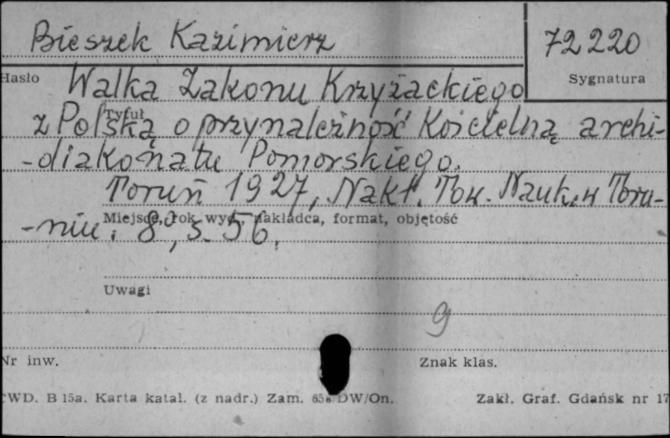 Bieszek Kazimierz
72220
Hasło
Sygnatura
Walka Zakonu Krzyżackiego
Tytuł
z Polską o przynależność Kościelną archi-
-diakonatu Pomorskiego.
Toruń 1927, Nakł. Tow. Nauk. w Toru-
Miejsce, rok wyd., nakładca, format, objętość
-niu. 8º, s. 56.
Uwagi
9
Nr inw.
Znak klas.
CWD. B 15a. Karta katal. (z nadr.) Zam. DW/On.
Zakł. Graf. Gdańsk nr 17